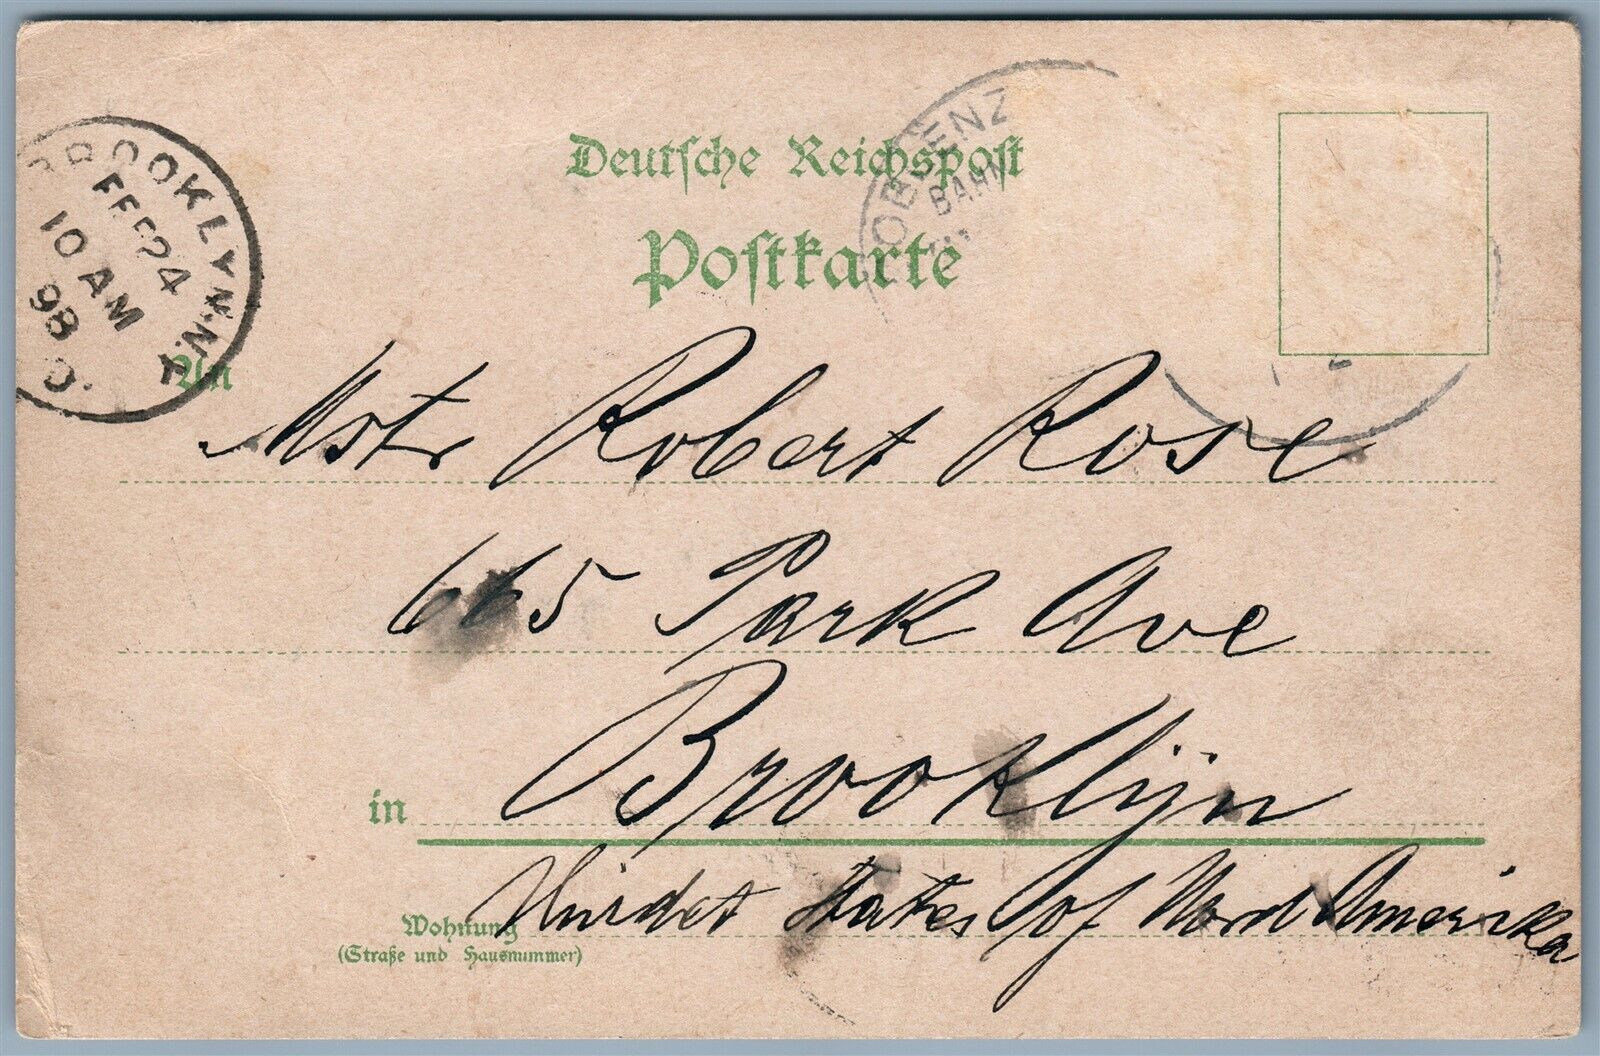 Deutsche Reichspost
Postkarte
OBLENZ
BAHN
BROOKLYN.N.Y
FEB 24
10 AM
98
An
Mstr Robert Rose
665 Park Ave
in Brooklÿn
States of Nord Amerika
Wohnung
(Straße und Hausnummer)